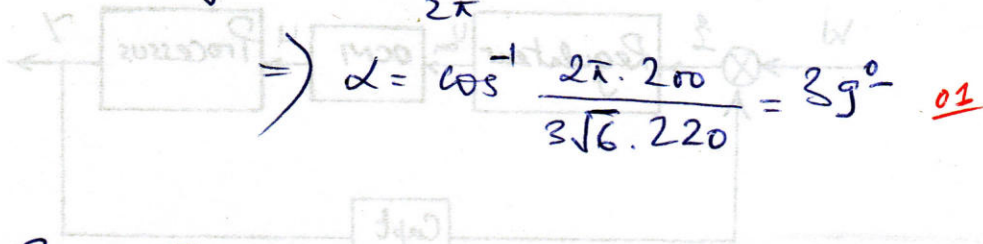 2π
=) α = cos⁻¹ 2π. 200 / 3√6. 220 = 39° 01